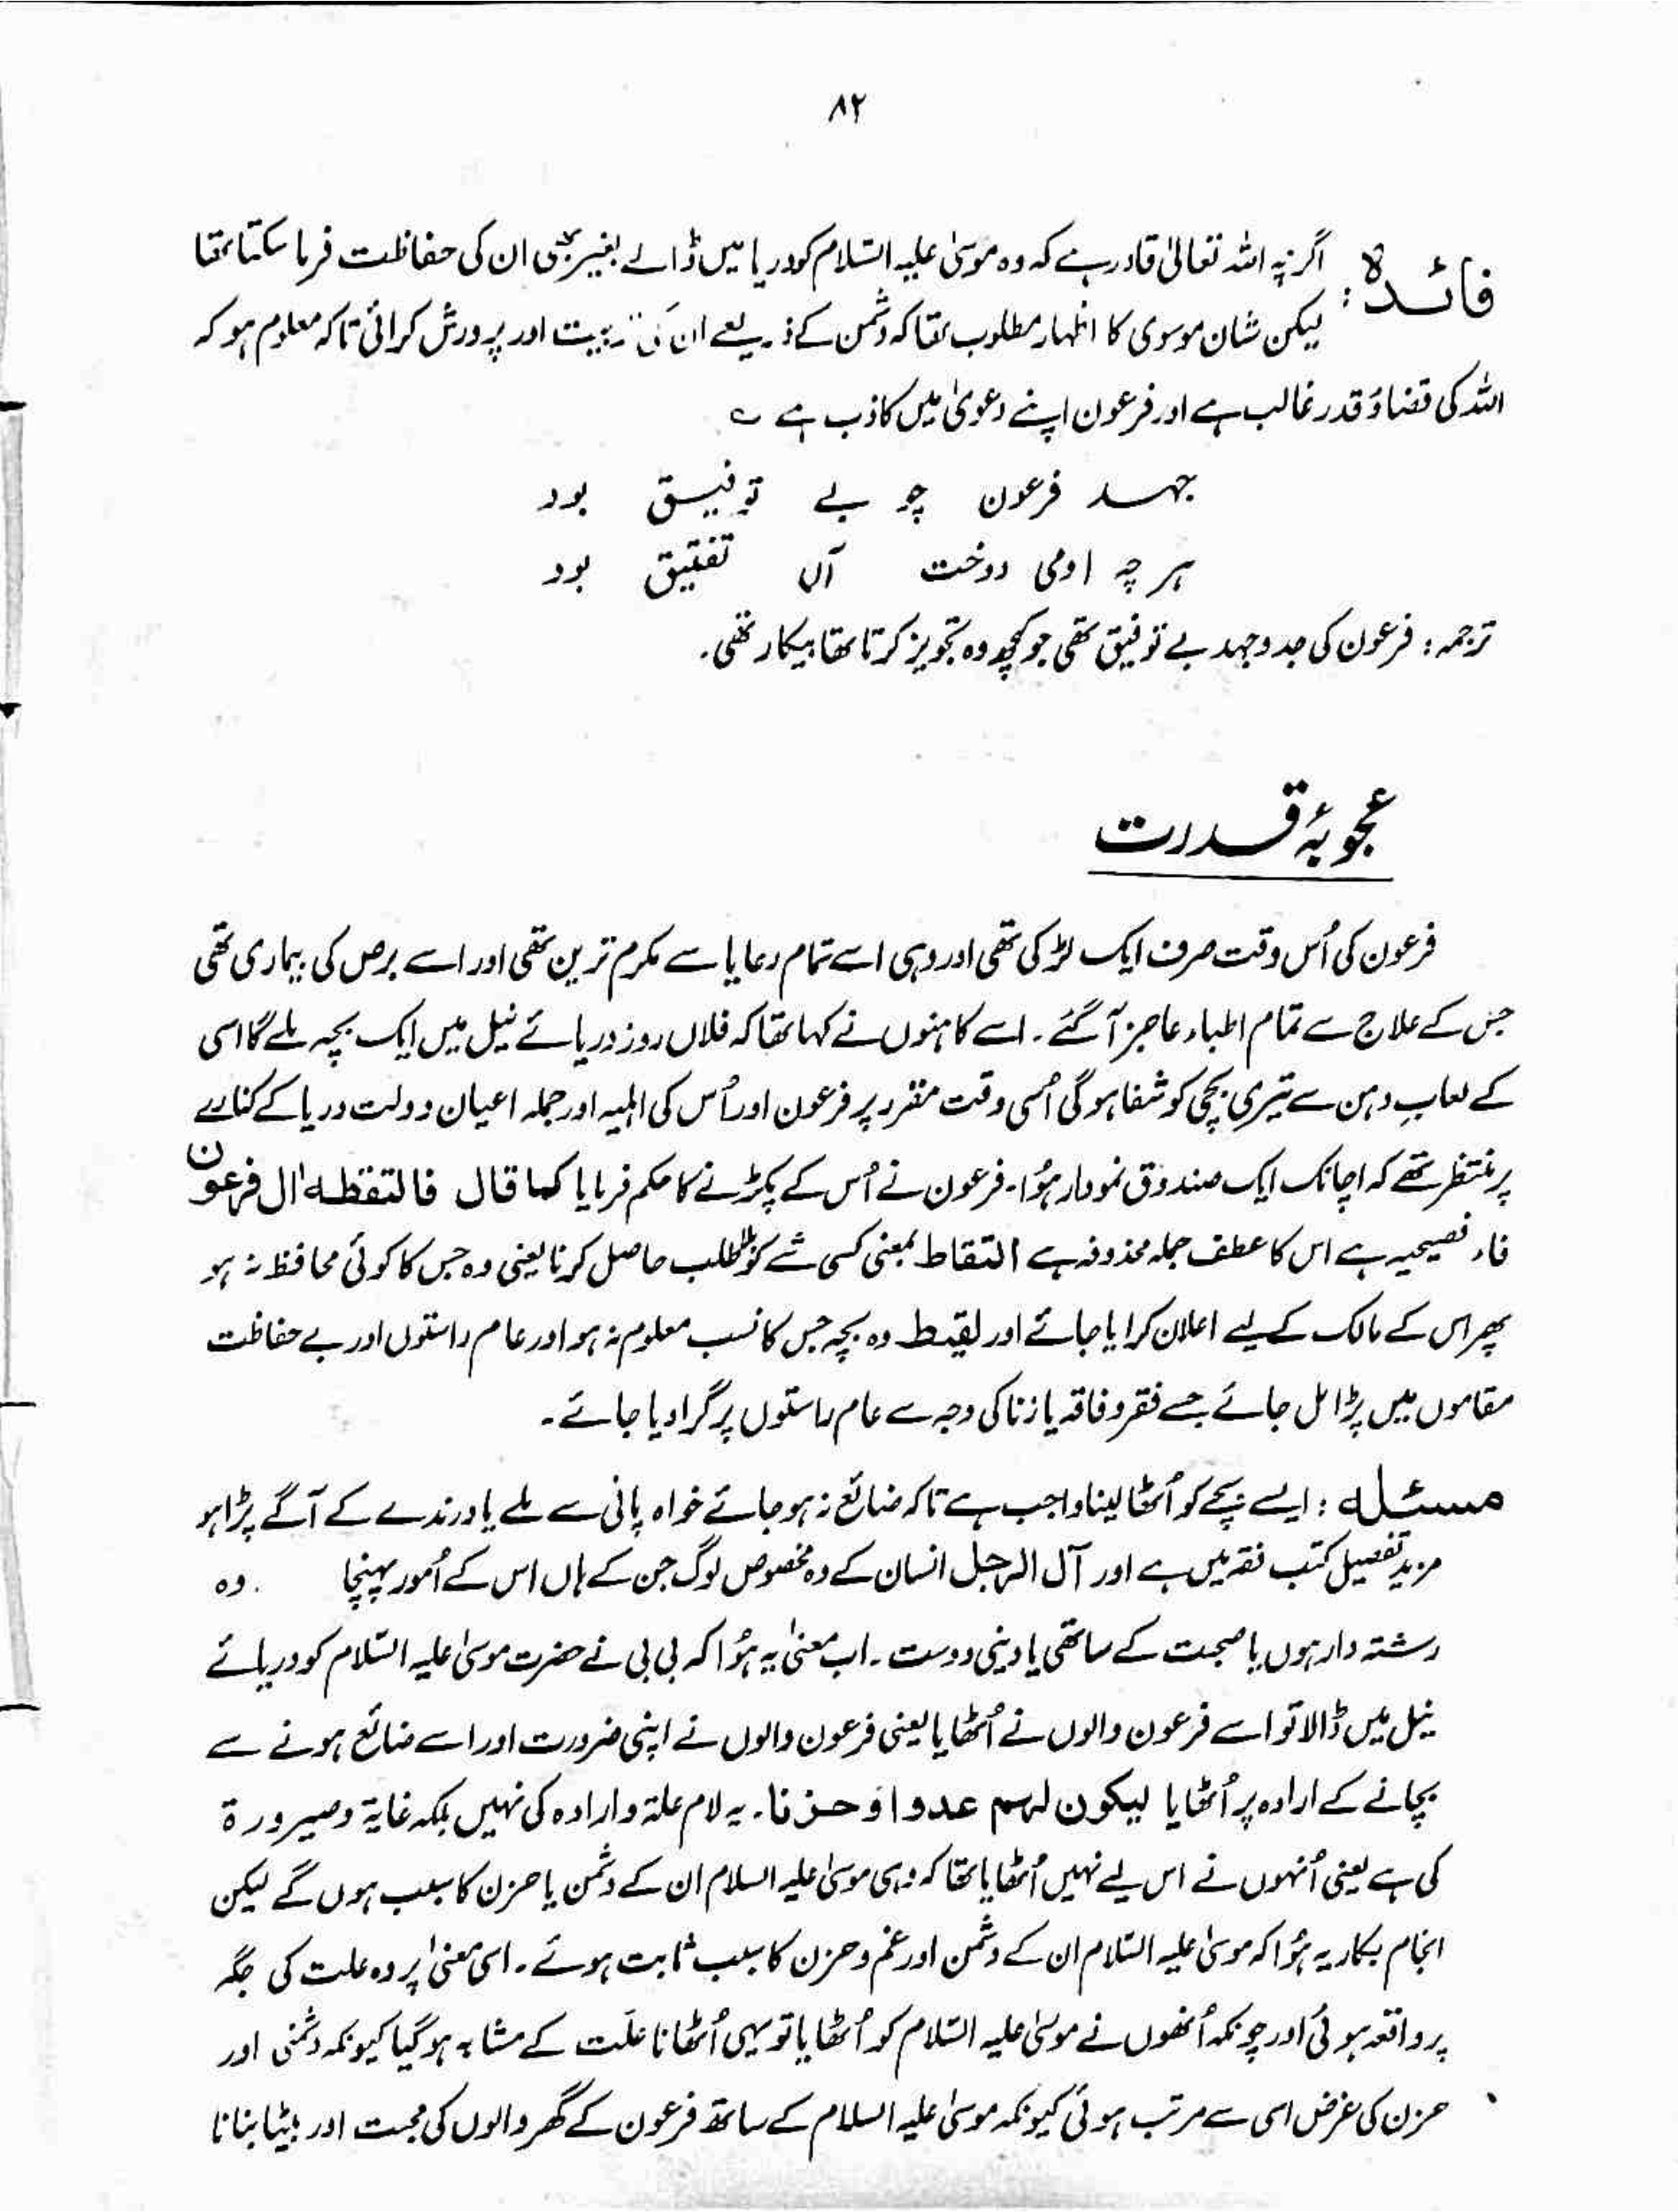 ۸۲
فائدہ: اگرچہ اللہ تعالیٰ قادر ہے کہ وہ موسیٰ علیہ السّلام کو دریا میں ڈالے بغیر بھی ان کی حفاظت فرما سکتا تھا
لیکن شان موسوی کا اظہار مطلوب تھا کہ دشمن کے ذریعے ان کی تربیت اور پرورش کرائی تاکہ معلوم ہو کہ
اللہ کی قضاؤ قدر غالب ہے اور فرعون اپنے دعویٰ میں کاذب ہے ؎
جہد فرعون چو بے توفیق بود
ہر چہ اومی دوخت آں تفتیق بود
ترجمہ: فرعون کی جدوجہد بے توفیق تھی جو کچھ وہ تجویز کرتا تھا بیکار تھی۔
عجوبۂ قدرت
فرعون کی اُس وقت صرف ایک لڑکی تھی اور وہی اسے تمام رعایا سے مکرم ترین تھی اور اسے برص کی بیماری تھی
جس کے علاج سے تمام اطباء عاجز آ گئے۔ اسے کاہنوں نے کہا تھا کہ فلاں روز دریائے نیل میں ایک بچہ ملے گا اسی
کے لعابِ دہن سے تیری بچی کو شفا ہوگی اُسی وقت مقرر پر فرعون اور اُس کی اہلیہ اور جملہ اعیان دولت دریا کے کنارے
پر منتظر تھے کہ اچانک ایک صندوق نمودار ہُوا۔ فرعون نے اُس کے پکڑنے کا حکم فرمایا کما قال فالتقطہ اٰل فرعون
فاء فصیحیہ ہے اس کا عطف جملہ محذوفہ ہے التقاط بمعنی کسی شے کو بلاطلب حاصل کرنا یعنی وہ جس کا کوئی محافظ نہ ہو
پھر اس کے مالک کے لیے اعلان کرایا جائے اور لقیط وہ بچہ جس کا نسب معلوم نہ ہو اور عام راستوں اور بے حفاظت
مقاموں میں پڑا مل جائے جسے فقر و فاقہ یا زنا کی وجہ سے عام راستوں پر گرا دیا جائے۔
مسئلہ: ایسے بچے کو اُٹھا لینا واجب ہے تاکہ ضائع نہ ہو جائے خواہ پانی سے ملے یا درندے کے آگے پڑا ہو
مزید تفصیل کتب فقہ میں ہے اور آل الرجل انسان کے وہ مخصوص لوگ جن کے ہاں اس کے اُمور پہنچا وہ
رشتہ دار ہوں یا صحبت کے ساتھی یا دینی دوست۔ اب معنیٰ یہ ہُوا کہ بی بی نے حضرت موسیٰ علیہ السّلام کو دریائے
نیل میں ڈالا تو اسے فرعون والوں نے اُٹھایا یعنی فرعون والوں نے اپنی ضرورت اور اسے ضائع ہونے سے
بچانے کے ارادہ پر اُٹھایا لیکون لہم عدوا وّحزنا۔ یہ لام علۃ و ارادہ کی نہیں بلکہ غایۃ و صیرورۃ
کی ہے یعنی اُنہوں نے اس لیے نہیں اُٹھایا تھا کہ وہی موسیٰ علیہ السلام ان کے دشمن یا حزن کا سبب ہوں گے لیکن
انجام بکار یہ ہُوا کہ موسیٰ علیہ السّلام ان کے دشمن اور غم و حزن کا سبب ثابت ہوئے۔ اسی معنیٰ پر وہ علت کی جگہ
پر واقعہ ہوئی اور چونکہ اُنھوں نے موسیٰ علیہ السّلام کو اُٹھایا تو یہی اُٹھانا علّت کے مشابہ ہوگیا کیونکہ دشمنی اور
حزن کی غرض اسی سے مرتب ہوئی کیونکہ موسیٰ علیہ السلام کے ساتھ فرعون کے گھر والوں کی محبت اور بیٹا بنانا